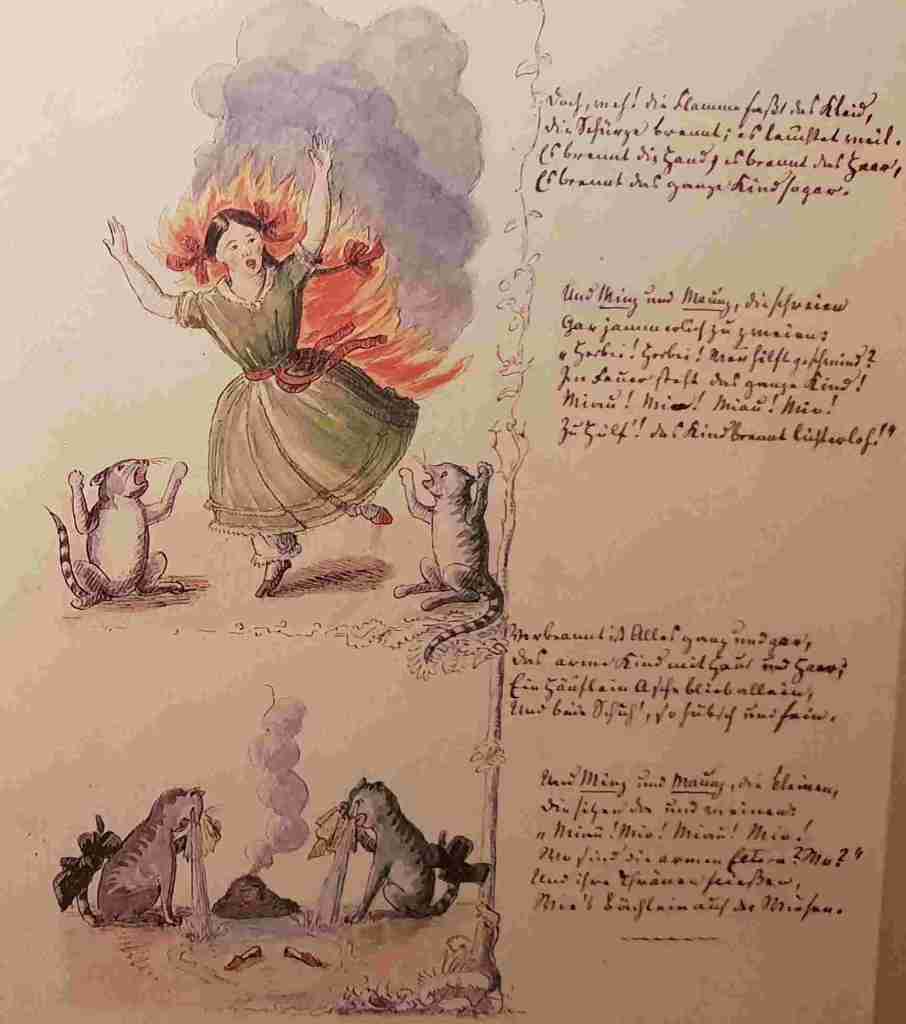 Doch, weh! die Flamme faßt das Kleid,
Die Schürze brennt; es leuchtet weit.
Es brennt die Hand, es brennt das Haar,
Es brennt das ganze Kind sogar.
Und Minz und Maunz, die schreien
Gar jämmerlich zu zweien:
„Herbei! Herbei! Wer hilft geschwind?
In Feuer steht das ganze Kind!
Miau! Mio! Miau! Mio!
Zu Hülf'! das Kind brennt lichterloh!"
Verbrannt ist Alles ganz und gar,
Das arme Kind mit Haut und Haar;
Ein Häuflein Asche blieb allein,
Und beide Schuh', so hübsch und fein.
Und Minz und Maunz, die kleinen,
Die sitzen da und weinen:
„Miau! Mio! Miau! Mio!
Wo sind die armen Eltern? Wo?"
Und ihre Thränen fließen,
Wie's Bächlein auf der Wiesen.